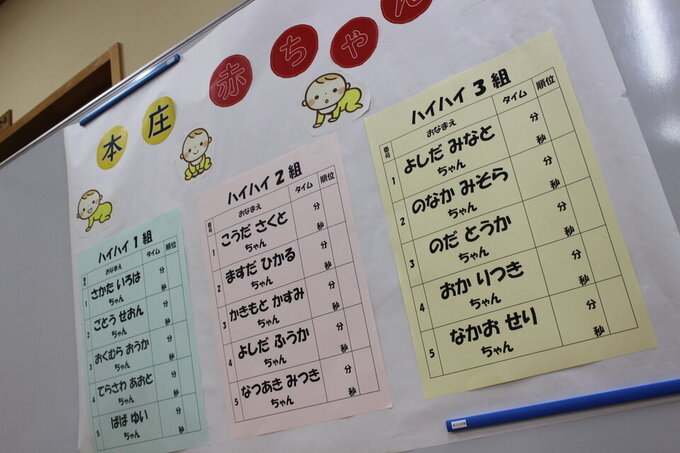 本庄赤ちゃん
ハイハイ1組
番号 おなまえ タイム 順位
1 さかた いろは ちゃん 分 秒
2 ごとう せおん ちゃん 分 秒
3 おくむら おうか ちゃん 分 秒
4 てらさわ あおと ちゃん 分 秒
5 ばば ゆい ちゃん 分 秒
ハイハイ2組
番号 おなまえ タイム 順位
1 こうだ さくと ちゃん 分 秒
2 ますだ ひかる ちゃん 分 秒
3 かきもと かすみ ちゃん 分 秒
4 よしだ ふうか ちゃん 分 秒
5 なつあき みつき ちゃん 分 秒
ハイハイ3組
番号 おなまえ タイム 順位
1 よしだ みなと ちゃん 分 秒
2 のなか みそら ちゃん 分 秒
3 のだ とうか ちゃん 分 秒
4 おか りつき ちゃん 分 秒
5 なかお せり ちゃん 分 秒